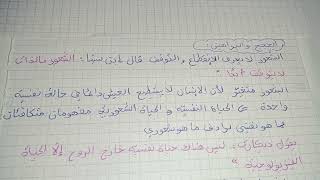 الحجج والبراهين:
الشعور لا يعرف الإنقطاع والتوقف قال ابن سينا: "الشعور بالذات
لا يتوقف أبدا"
الشعور متغير لأن الإنسان لا يستطيع العيش دائما في حالة نفسية
واحدة ⇐ الحياة النفسية و الحياة الشعورية مفهومان متكافئان
فما هو نفسي يرادف ما هو شعوري
يقول ديكارت: "ليس هناك حياة نفسية خارج الروح إلا الحياة
الفيزيولوجية"